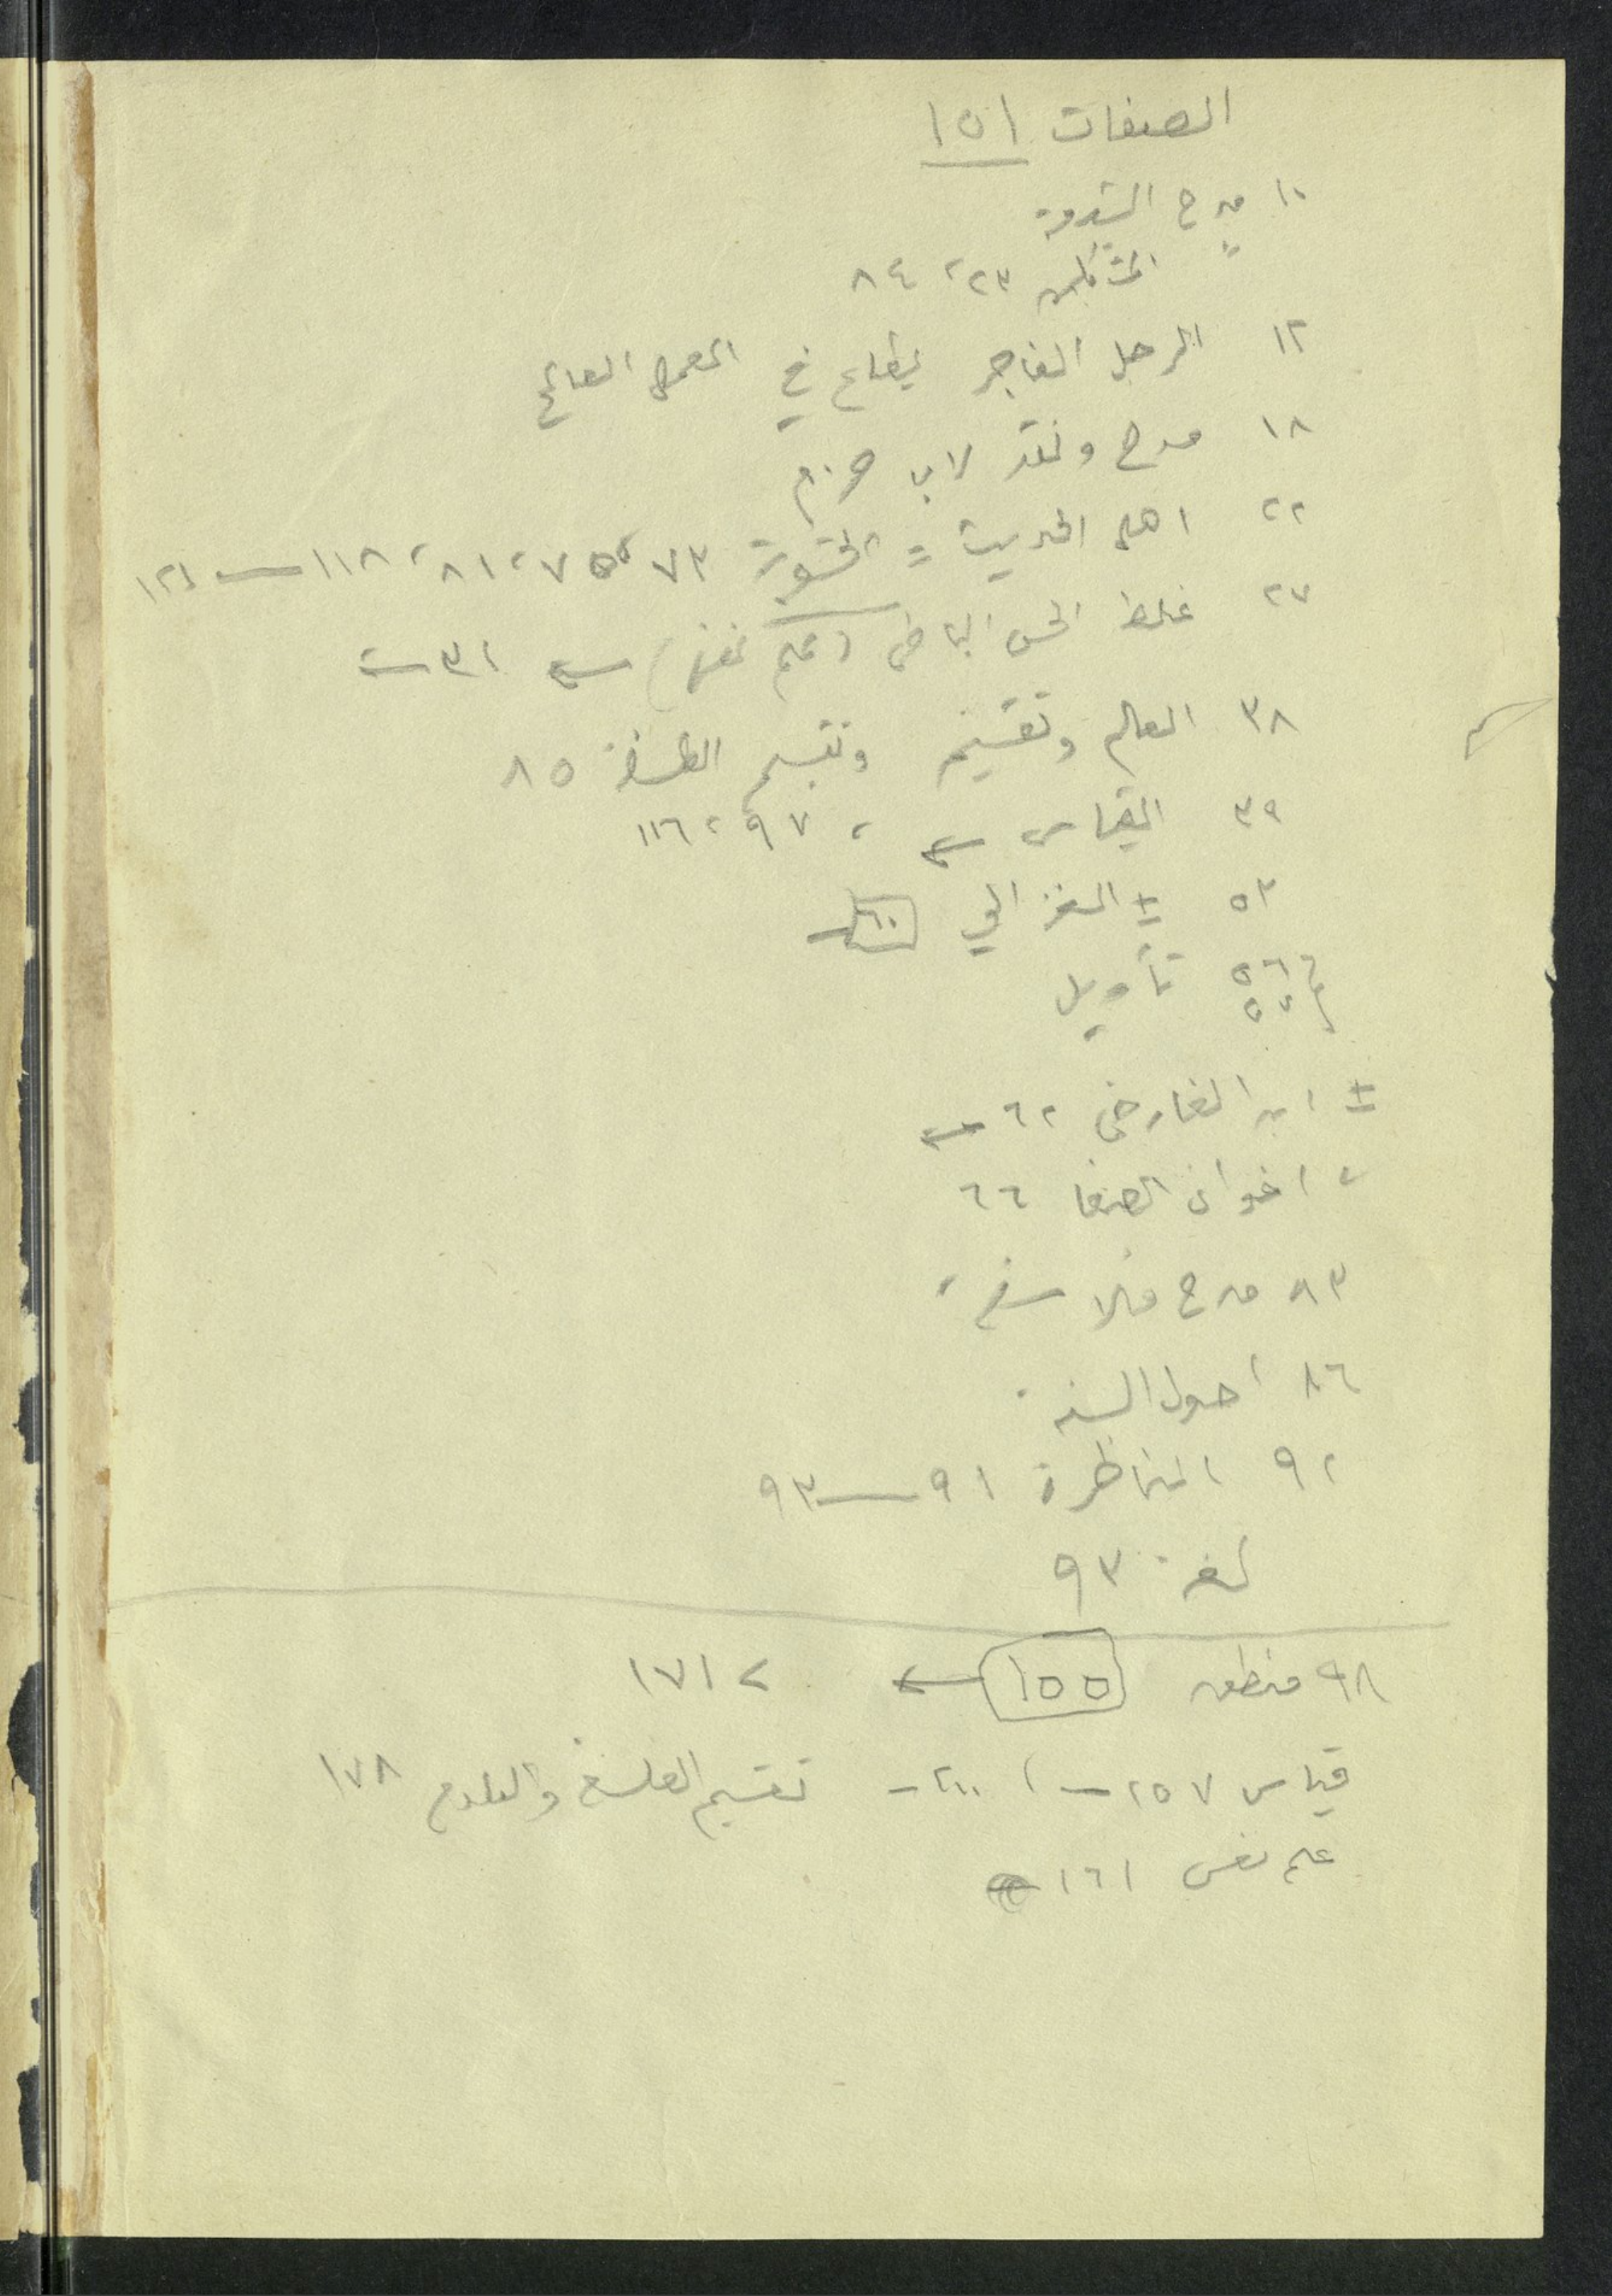 الصفات ١٥١
١٠ مدح الشدة
" المشائين ٢٣، ٨٤
١٢ الرجل الفاجر يطاع في العمل الصالح
١٨ مدح ونقد لابن حزم
٢٢ اهل الحديث = الحشوية ٧٣، ٧٥، ٨١، ١١٨ — ١٢١
٢٧ غلط الحس الباطن (علم نفس) — ٣١
٣٨ العالم وتقسيم وتقسيم الفلسفة ٨٥
٣٩ القياس ← ، ٩٧، ١١٦
٥٣ ± الغزالي ١٠٠
٥٦ تأويل
٥٧
± ابن الفارض ٦٢ ←
" اخوان الصفا ٦٦
٨٣ مدح فلاسفة
٨٦ اصول السنة
٩٢ المناظرة ٩١ — ٩٣
لغة ٩٣
٩٨ منطق ١٥٥ ← ، ١٧١
قياس ٢٥٧ — ، ٢٠٠ — تقسيم الفلسفة والعلوم ١٧٨
علم نفس ١٦١